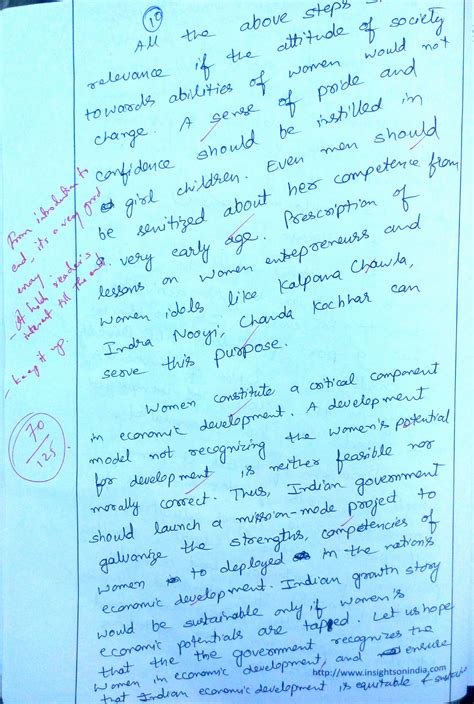 10
All the above steps
relevance if the attitude of society
towards abilities of women would not
change. A sense of pride and
confidence should be instilled in
girl children. Even men should
be senitized about her competence from
very early age. Prescription of
lessons on women entepreneurs and
women idols like Kalpana Chawla,
Indra Nooyi, Chanda Kochhar can
serve this purpose.
From introduction to
end, it's a very good
essay
- It held reader's
interest till the end.
- Keep it up.
70
125
Women constitute a critical component
in economic development. A development
model not recognizing the women's potential
for development is neither feasible nor
morally correct. Thus, Indian government
should launch a mission-mode project to
galvanize the strengths, competencies of
women to deployed in the nation's
economic development. Indian growth story
would be sustainable only if women's
economic potentials are tapped. Let us hope
that the the government recognizes the
women in economic development, and ensure
http://www.insightsonindia.com
that Indian economic development is equitable &